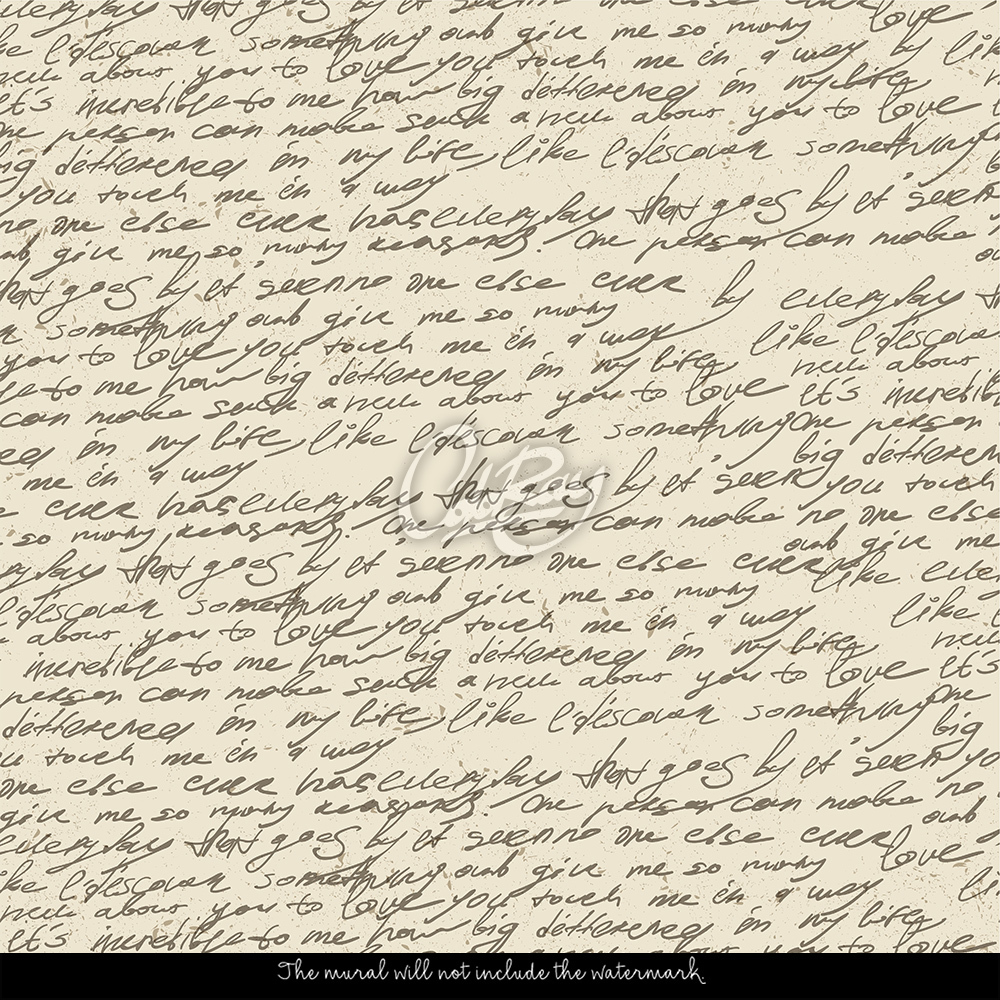 that goes by it' seen no one else ever
like I discover something and give me so many love
about you to love you touch me in a way by like
It's incredible to me how big difference in my life
one person can make such a about you to love
big difference in my life, like I discover something
you touch me in a way
no one else ever has everyday that goes by it' seen
and give me so many reasons. One person can make
that goes by it' seen no one else ever by everyday
something and give me so many like I discover
you to love you touch me in a way about
to me how big difference in my life It's incredible
can make such a about you to love one person
in my life, like I discover something big difference
me in a way you touch
ever has everyday that goes by it' seen no one else
so many reasons. One person can make and give me
everyday that goes by it' seen no one else ever
I discover something and give me so many like
about you to love you touch me in a way
incredible to me how big difference in my life It's
person can make such a about you to love one
difference in my life, like I discover something big
touch me in a way you
one else ever has everyday that goes by it' seen no
give me so many reasons. One person can make and
everyday that goes by it' seen no one else ever love
like I discover something and give me so many
about you to love you touch me in a way
It's incredible to me how big difference in my life
Oh Boy
The mural will not include the watermark.